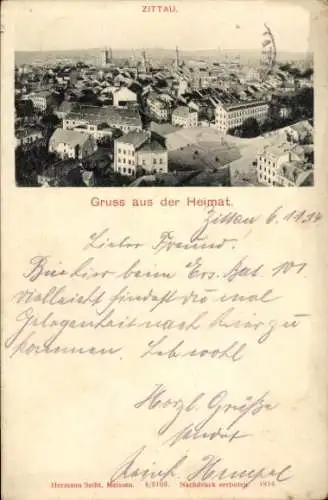 ZITTAU.
Gruss aus der Heimat.
Zittau 6.11.14
Lieber Freund!
Bin hier beim Ers. Bat. 101
vielleicht findest du mal
Gelegenheit nach hier zu
kommen. Leb wohl
Herzl. Grüße
sendet
Heinr. Hempel
Hermann Seibt, Meissen. Nachdruck verboten. 1914